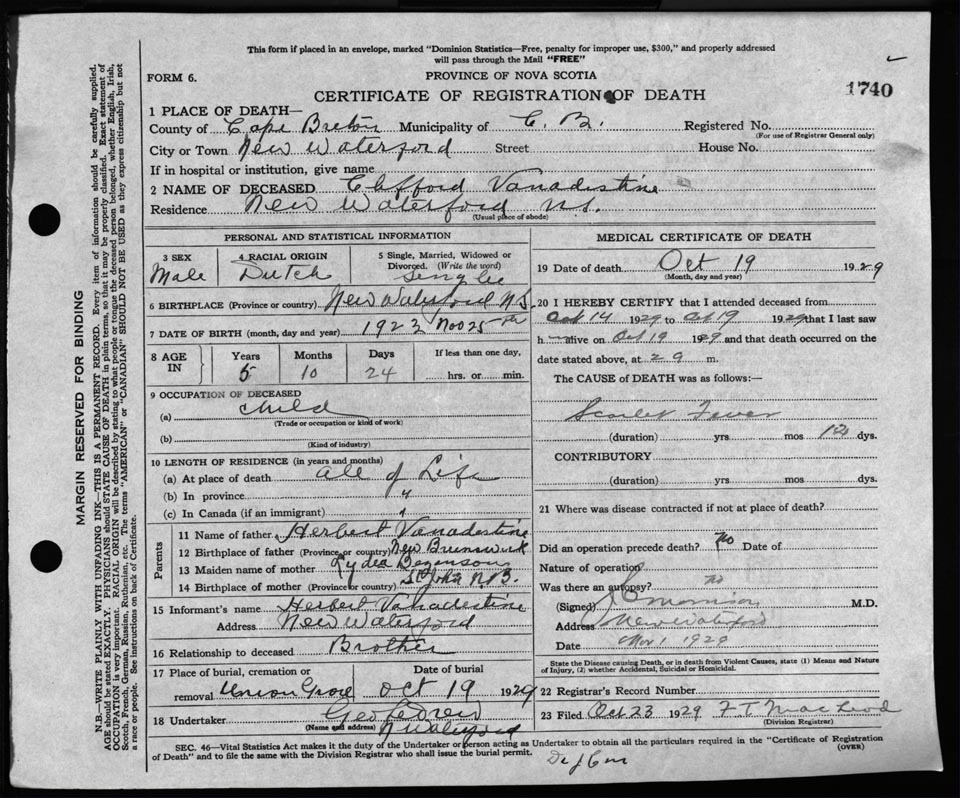 This form if placed in an envelope, marked "Dominion Statistics—Free, penalty for improper use, $300," and properly addressed
will pass through the Mail "FREE"
FORM 6.
PROVINCE OF NOVA SCOTIA
CERTIFICATE OF REGISTRATION OF DEATH
1740
1 PLACE OF DEATH—
County of Cape Breton Municipality of C. B. Registered No.
(For use of Registrar General only)
City or Town New Waterford Street House No.
If in hospital or institution, give name
2 NAME OF DECEASED Clifford Vanadestine
Residence New Waterford N.S.
(Usual place of abode)
PERSONAL AND STATISTICAL INFORMATION
3 SEX Male
4 RACIAL ORIGIN Dutch
5 Single, Married, Widowed or Divorced. (Write the word)
6 BIRTHPLACE (Province or country) New Waterford N.S.
7 DATE OF BIRTH (month, day and year) 1923 Nov 25th
8 AGE IN Years 5 Months 10 Days 24 If less than one day, hrs. or min.
9 OCCUPATION OF DECEASED
(a) child
(Trade or occupation or kind of work)
(b)
(Kind of industry)
10 LENGTH OF RESIDENCE (in years and months)
(a) At place of death all of Life
(b) In province "
(c) In Canada (if an immigrant) "
Parents
11 Name of father Herbert Vanadestine
12 Birthplace of father (Province or country) New Brunswick
13 Maiden name of mother Lydia
14 Birthplace of mother (Province or country) St John N.B.
15 Informant's name Herbert Vanadestine
Address New Waterford
16 Relationship to deceased Brother
17 Place of burial, cremation or removal Union Grove Date of burial Oct 19 1929
18 Undertaker Geo
(Name and address) N Waterford
MEDICAL CERTIFICATE OF DEATH
19 Date of death Oct 19 1929
(Month, day and year)
20 I HEREBY CERTIFY that I attended deceased from
Oct 14 1929 to Oct 19 1929 that I last saw
h alive on Oct 19 1929 and that death occurred on the
date stated above, at 2 9 m.
The CAUSE OF DEATH was as follows:—
Scarlet Fever
(duration) yrs mos dys.
CONTRIBUTORY
(duration) yrs mos dys.
21 Where was disease contracted if not at place of death?
Did an operation precede death? No Date of
Nature of operation
Was there an autopsy? no
(Signed) M.D.
Address New Waterford
Date Nov 1 1929
State the Disease causing Death, or in death from Violent Causes, state (1) Means and Nature
of Injury, (2) whether Accidental, Suicidal or Homicidal.
22 Registrar's Record Number
23 Filed Oct 23 1929 F T MacLeod
(Division Registrar)
SEC. 46—Vital Statistics Act makes it the duty of the Undertaker or person acting as Undertaker to obtain all the particulars required in the "Certificate of Registration
of Death" and to file the same with the Division Registrar who shall issue the burial permit.
(OVER)
MARGIN RESERVED FOR BINDING
N.B.—WRITE PLAINLY WITH UNFADING INK—THIS IS A PERMANENT RECORD. Every item of information should be carefully supplied.
AGE should be stated EXACTLY. PHYSICIANS should STATE CAUSE OF DEATH in plain terms, so that it may be properly classified. Exact statement of
OCCUPATION is very important. RACIAL ORIGIN will be described by stating to what people or tongue the deceased person belonged, whether English, Irish,
Scotch, French, German, Russian, Ruthenian, etc. The terms "AMERICAN" or "CANADIAN" SHOULD NOT BE USED as they express citizenship but not
a race or people. See instructions on back of Certificate.